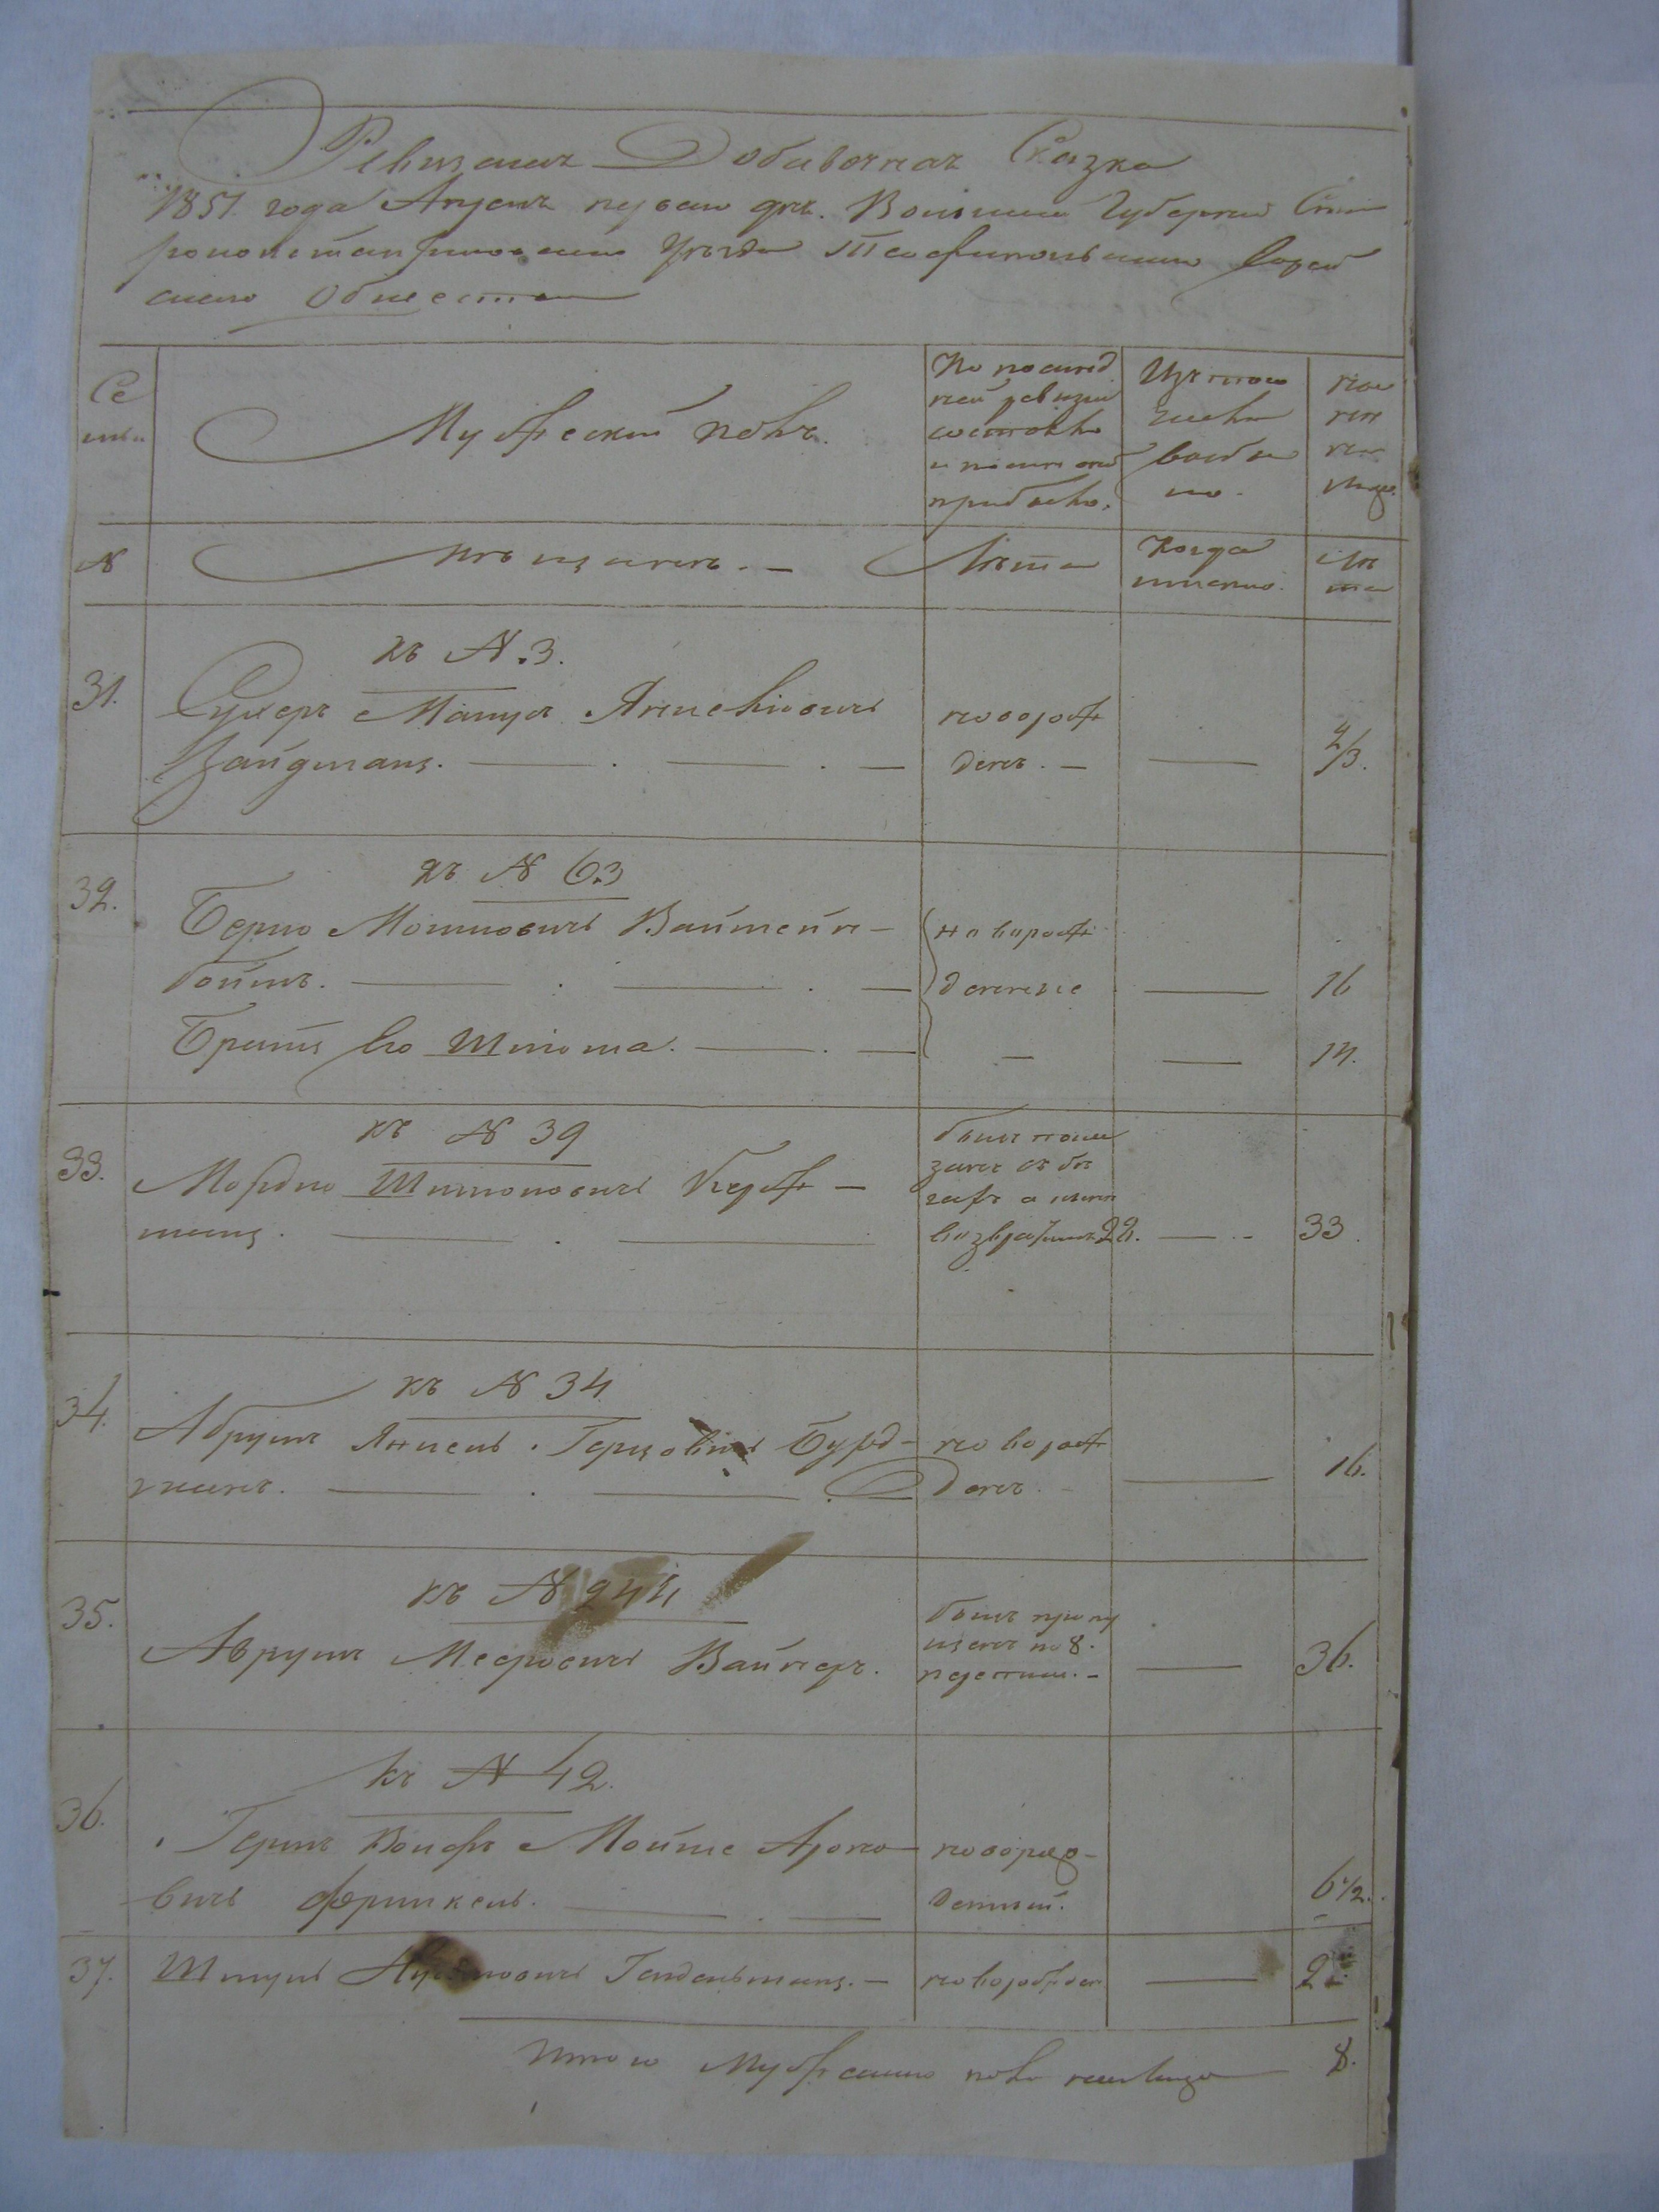 Ревизская Добавочная Сказка
1851 года Апреля первого дня. Волынской Губернии Ста
роконстантиновского Уезда Теофипольского Еврей
ского Общества
Се
мьи
Мужеский полъ.
По послед
ней ревизии
состояло
и после оной
прибыло.
Изъ того
числа
выбы
ло.
Ныне
на
лицо.
№
Мещанъ. —
Лета
Когда
именно.
Ле
та
къ № 3.
31.
Мануил Янкелиовичъ
Зайдманъ. — . — . —
новорож
денъ. —
—
2/3.
къ № 63
32.
Берко Мошковичъ Вайтейн-
бойтъ. — . — . —
новорож
денные
—
16
Братъ Его Шлиома. — . —
—
—
14.
къ № 39
33.
Мордко Шлиомовичъ Керж-
манъ. — . —
былъ пока
занъ въ бе
гахъ а ныне
возвратился 22.
—
33.
къ № 34
34.
Абрумъ Янкель Герцовичъ Бурд-
манъ. — . — . —
новорож
денъ. —
—
16.
къ № 244
35.
Аврумъ Мееровичъ Вайнеръ.
былъ пропу
щенъ по 8.
переписи. —
—
36.
къ № 42.
36.
Гершъ Вольфъ Мойше Ароно
вичъ Френкель. — . —
новорож-
денный.
6 1/2.
37.
Шмуль Гендельманъ. —
новорожден
—
2
Итого Мужеского пола налицо
8.